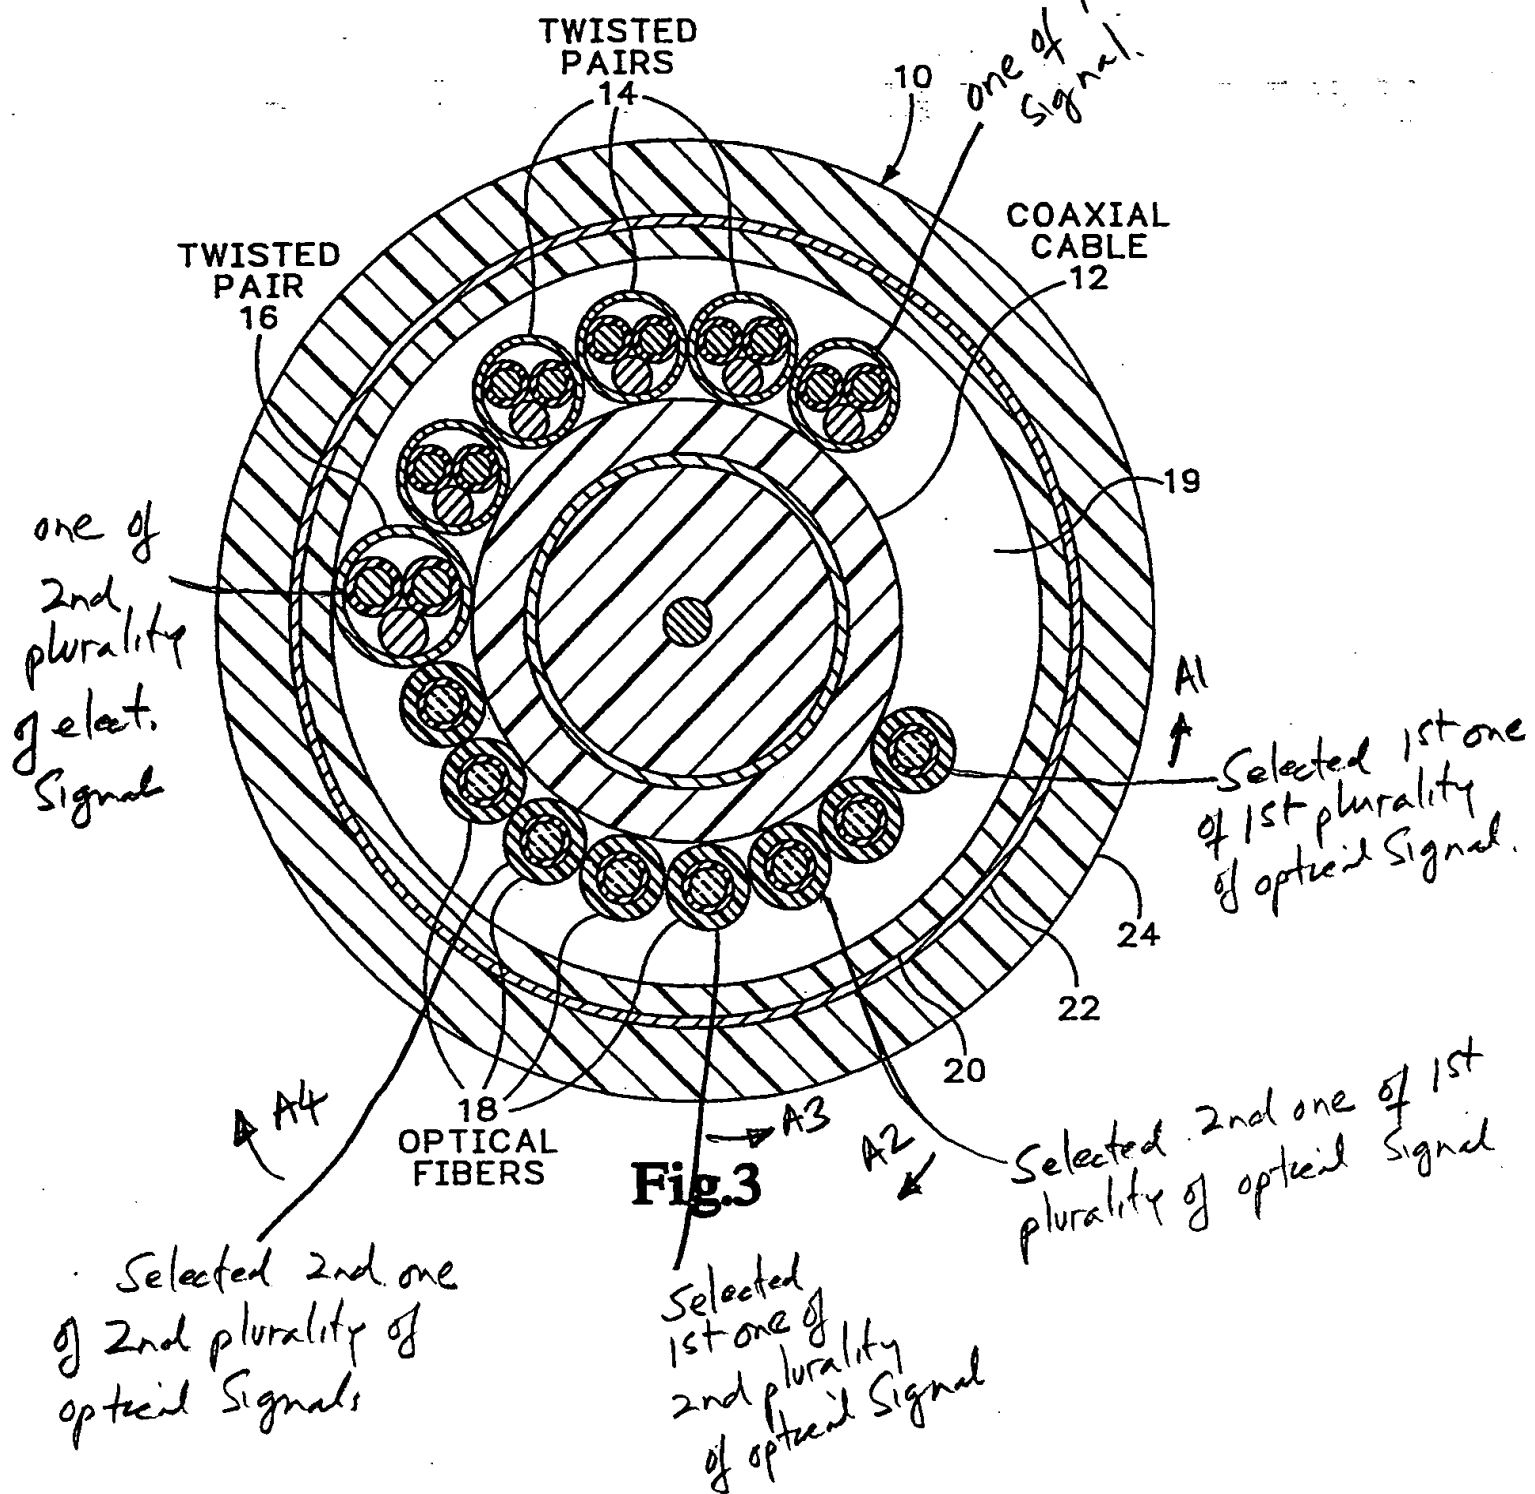 TWISTED
PAIRS
14
one of
Signal.
10
COAXIAL
CABLE
12
TWISTED
PAIR
16
19
one of
2nd
plurality
of elect.
Signal
A1
Selected 1st one
of 1st plurality
of optical Signal.
24
22
20
A4
18
OPTICAL
FIBERS
A3
A2
Fig.3
Selected 2nd one of 1st
plurality of optical Signal
Selected 2nd one
of 2nd plurality of
optical Signals
Selected
1st one of
2nd plurality
of optical Signal